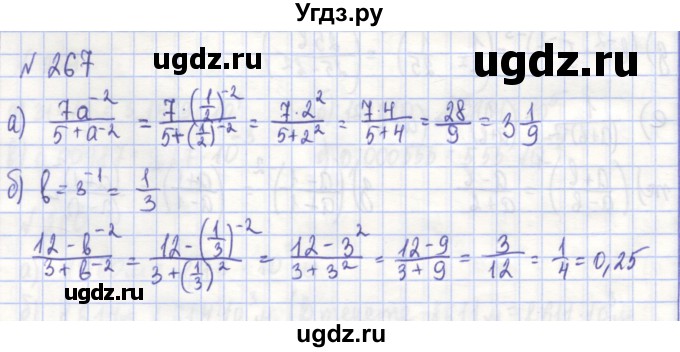 Угдз.ру
ugdz.ru ugdz.ru
№ 267
а) 7a^-2 / 5 + a^-2 = 7·(1/2)^-2 / 5+(1/2)^-2 = 7·2^2 / 5+2^2 = 7·4 / 5+4 = 28/9 = 3 1/9
ugdz.ru ugdz.ru
б) b = 3^-1 = 1/3
12 - b^-2 / 3 + b^-2 = 12 - (1/3)^-2 / 3 + (1/3)^2 = 12 - 3^2 / 3 + 3^2 = 12 - 9 / 3 + 9 = 3/12 = 1/4 = 0,25
ugdz.ru ugdz.ru
ugdz.ru